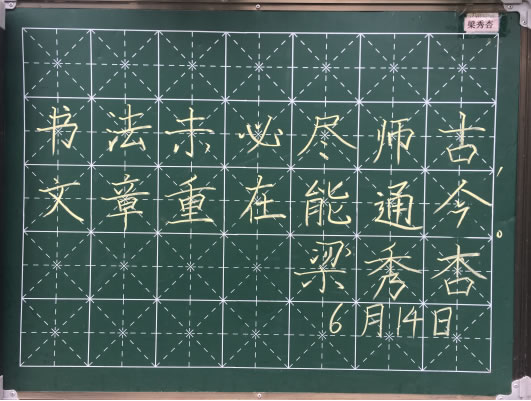 梁秀杏
书法未必尽师古，
文章重在能通今。
梁秀杏
6月14日